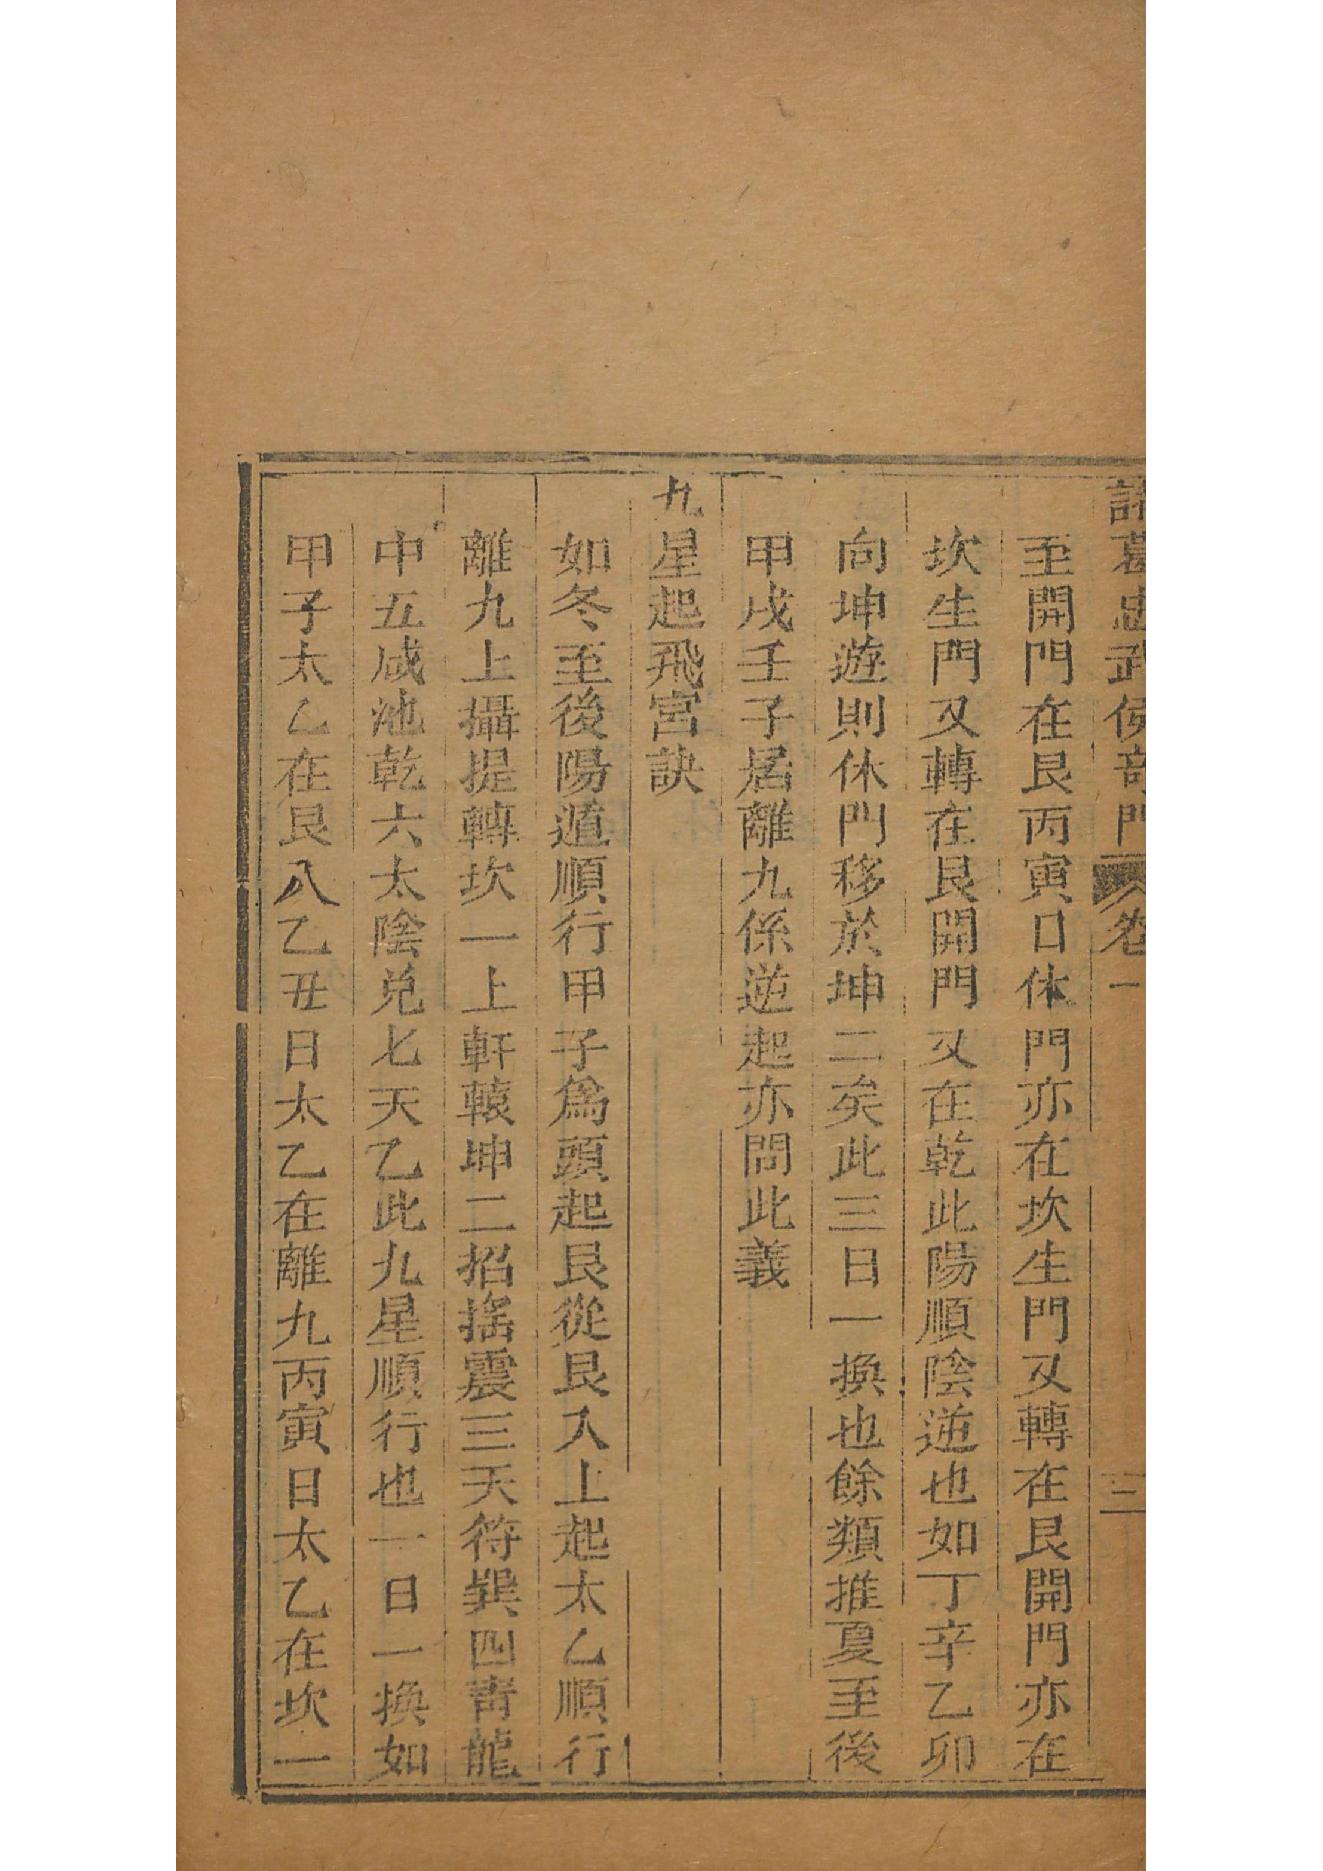 諸葛忠武侯奇門 卷一 三
至開門在艮丙寅口休門亦在坎生門又轉在艮開門亦在
坎生門又轉在艮開門又在乾此陽順陰逆也如丁辛乙卯
向坤遊則休門移於坤二矣此三日一換也餘類推夏至後
甲戌壬子居離九係逆起亦問此義
九星起飛宮訣
如冬至後陽遁順行甲子爲頭起艮從艮入上起太乙順行
離九上攝提轉坎一上軒轅坤二招搖震三天符巽四青龍
中五咸池乾六太陰兌七天乙此九星順行也一日一換如
甲子太乙在艮八乙丑日太乙在離九丙寅日太乙在坎一